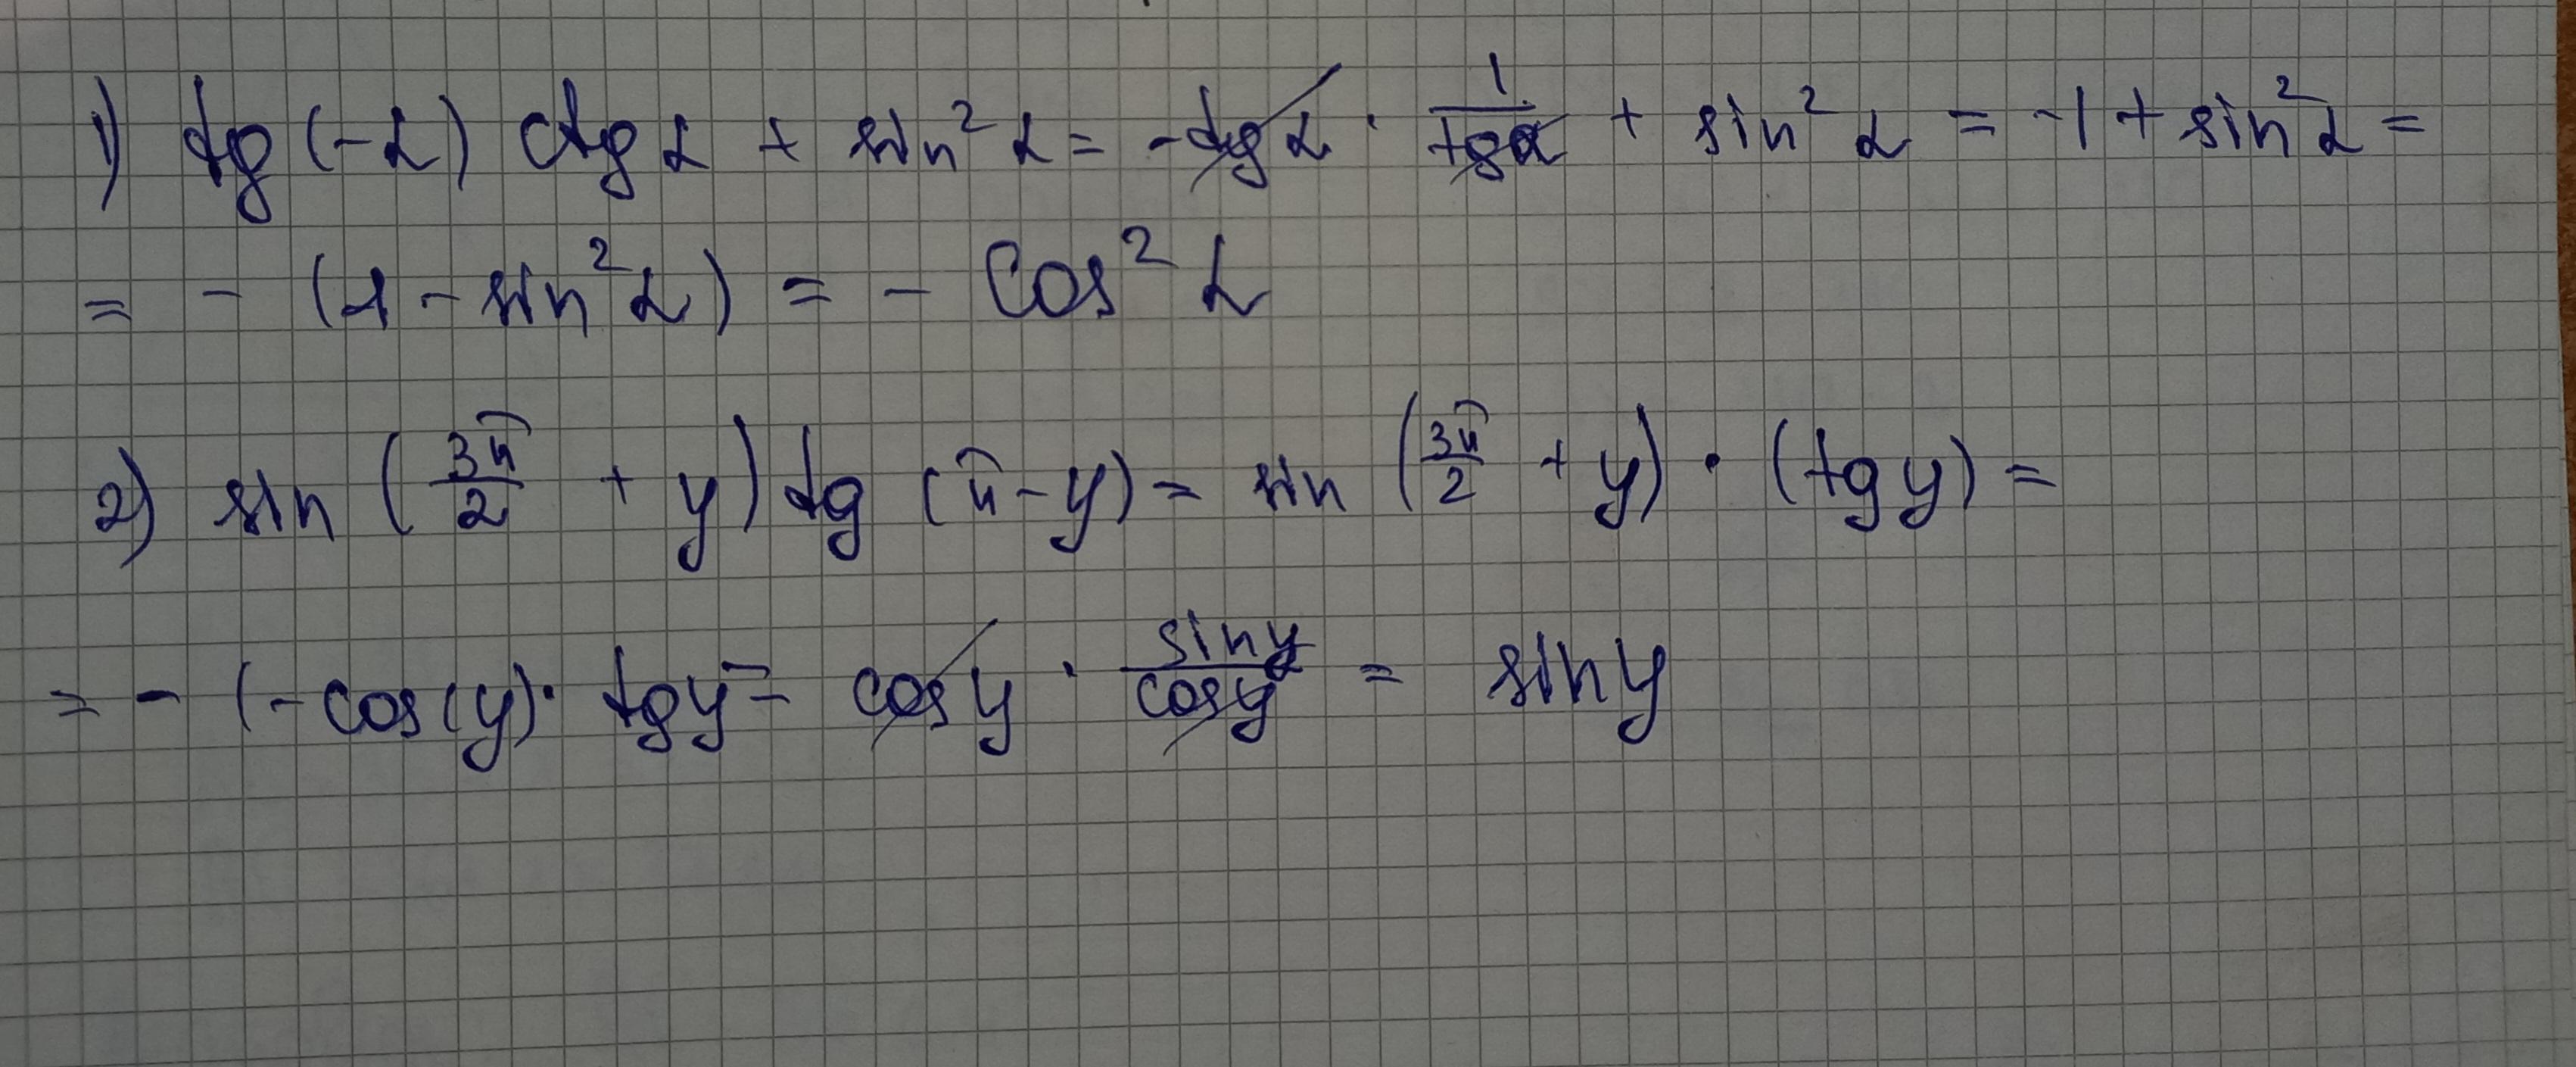 1) tg (-α) ctg α + sin² α = -tg α · 1/tg α + sin² α = -1 + sin² α =
= - (1 - sin² α) = - cos² α
2) sin (3π/2 + y) tg (π - y) = sin (3π/2 + y) · (tg y) =
= - (- cos(y) · tg y = cos y · sin y/cos y = sin y